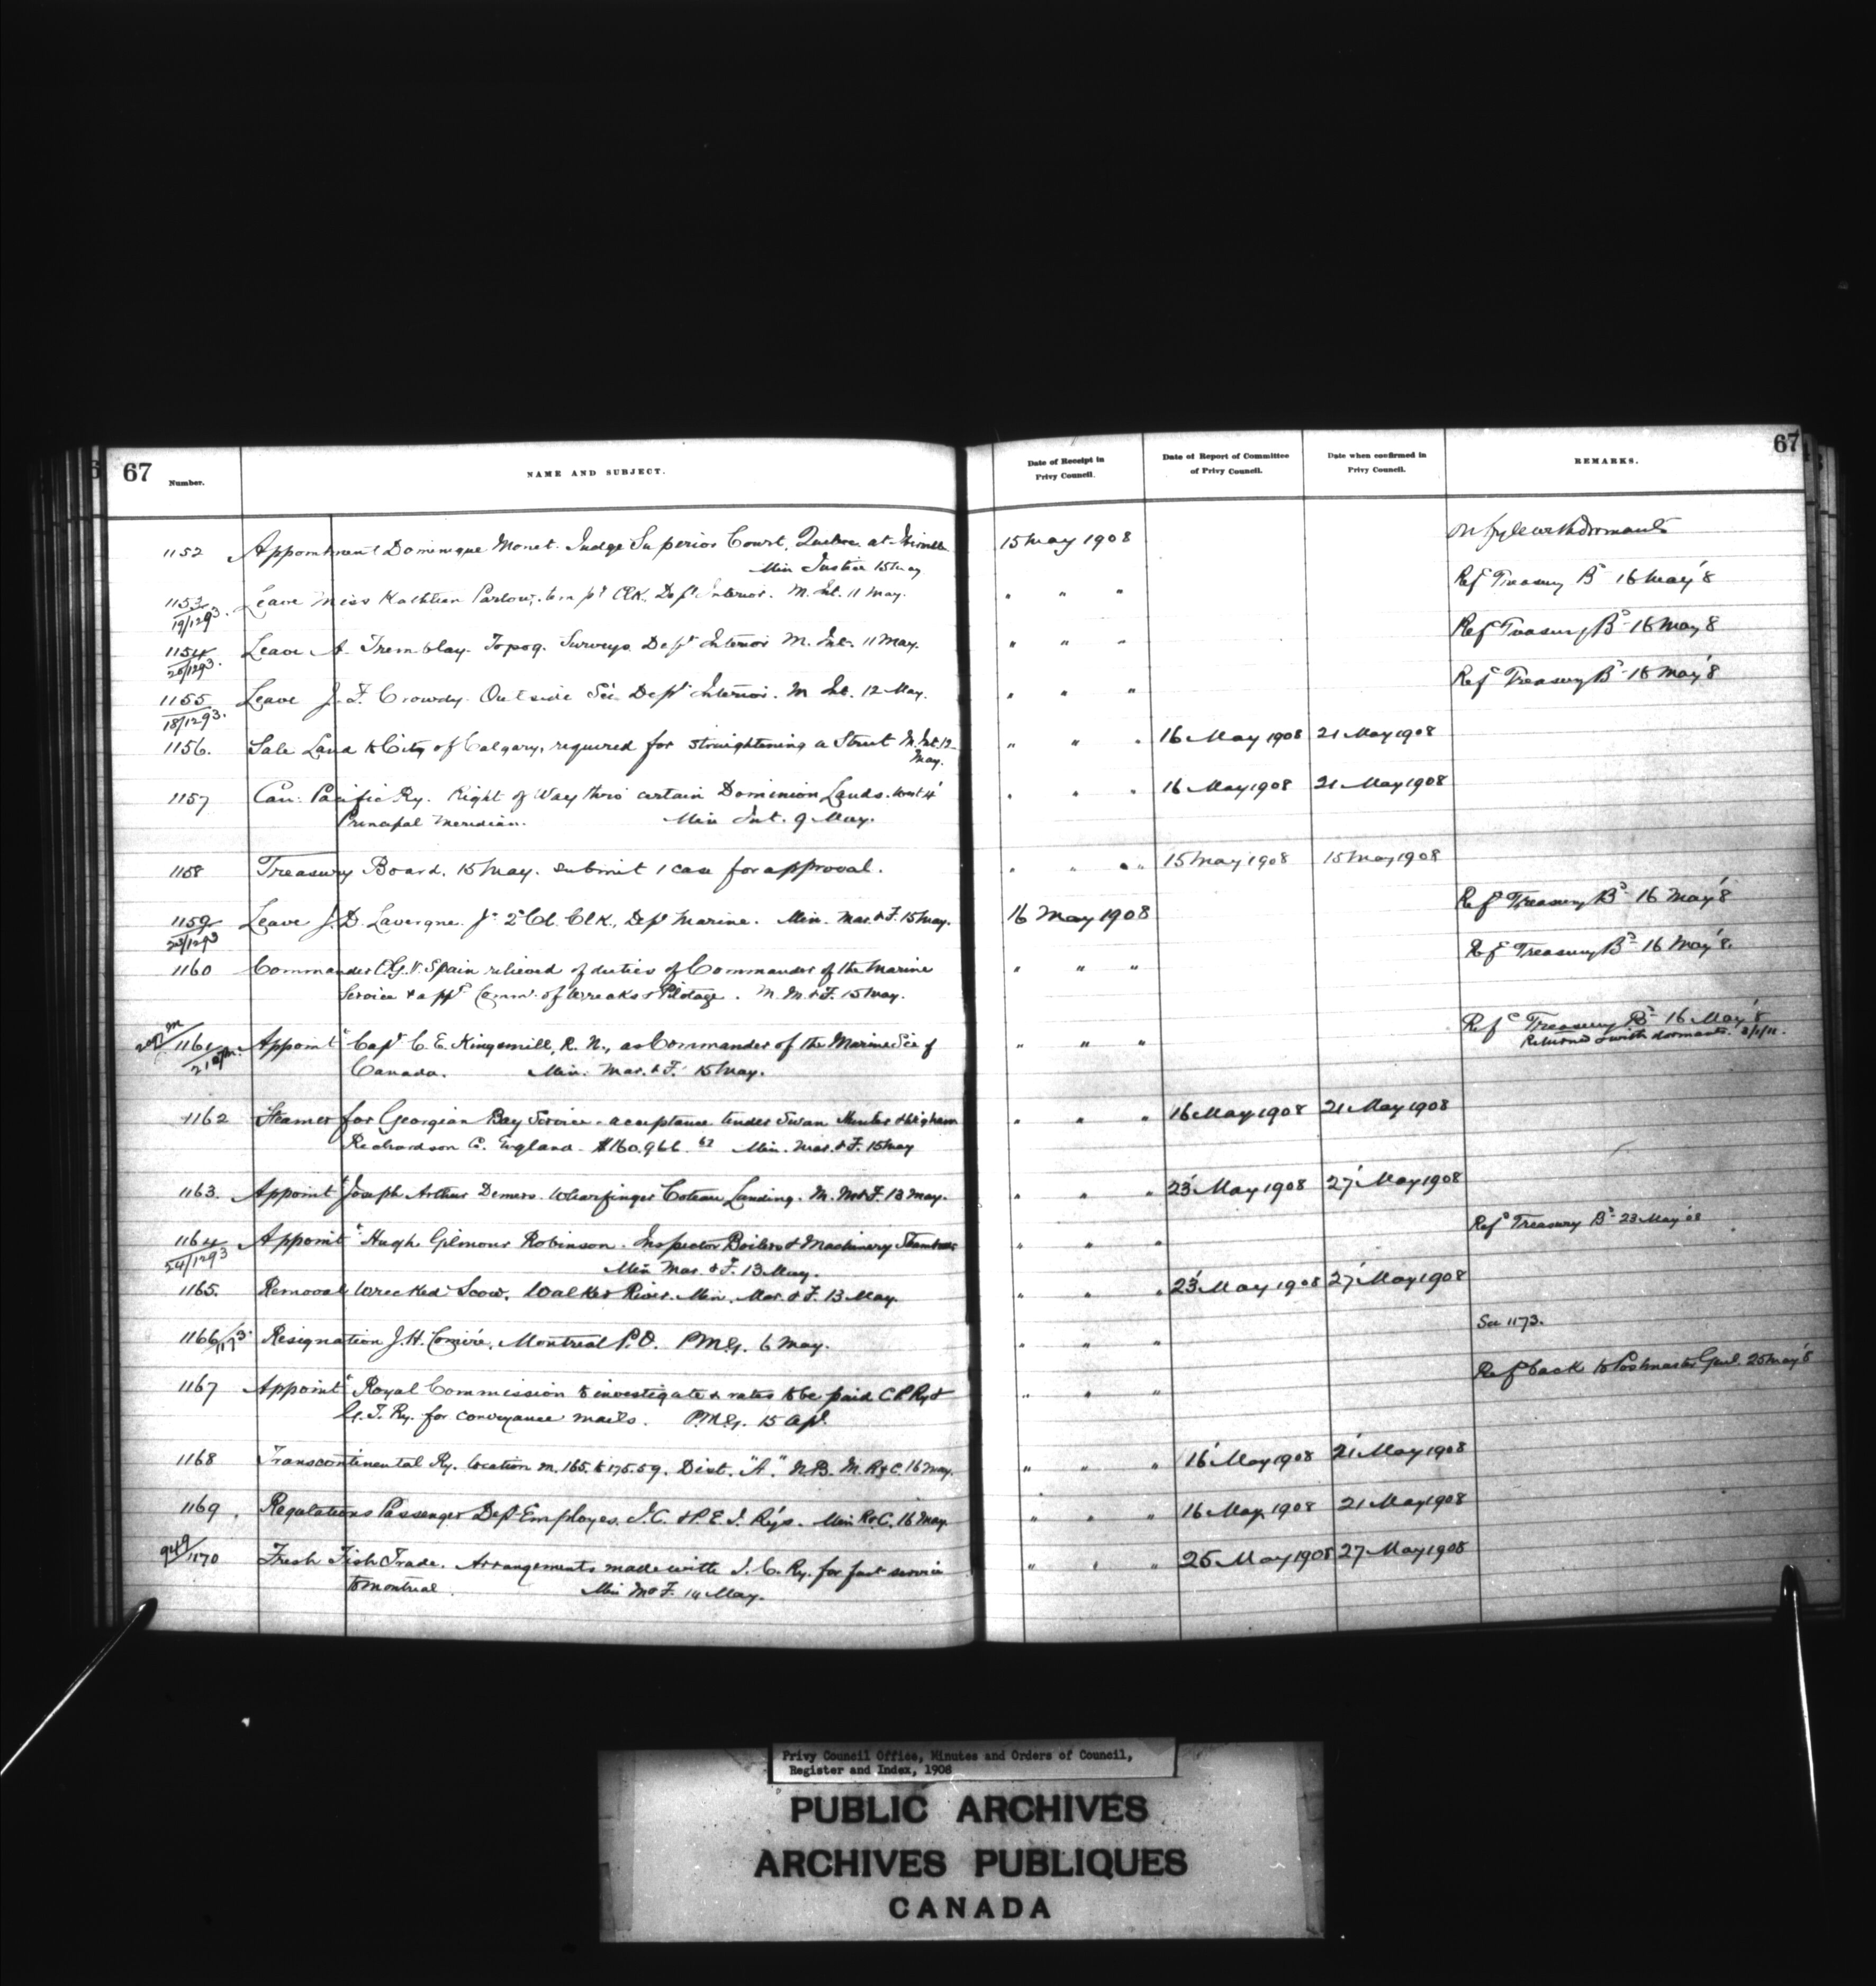 67
Number.
NAME AND SUBJECT.
Date of Receipt in Privy Council.
Date of Report of Committee of Privy Council.
Date when confirmed in Privy Council.
REMARKS.
67
1152 Appointment Dominique Monet. Judge Superior Court, Quebec at 15 May 1908
Min Justice 15 May
1153 Leave Miss Kathleen Parlow, temp^y Clk. Dept Interior. M. Int. 11 May. " " " Ref^d Treasury B^d 16 May '8
19/1293.
1154 Leave A. Tremblay. Topog. Surveys Dept Interior M. Int. 11 May. " " " Ref^d Treasury B^d 16 May 8
20/1293.
1155 Leave J. F. Crowdy. Outside Sce Dept Interior. M. Int. 12 May. " " " Ref^d Treasury B^d 16 May '8
18/1293.
1156. Sale Land to City of Calgary, required for straightening a Street M. Int. 12 " " " 16 May 1908 21 May 1908
May.
1157 Can. Pacific Ry. Right of Way thro' certain Dominion Lands. West 4' " " " 16 May 1908 21 May 1908
Principal Meridian. Min Int. 9 May.
1158 Treasury Board. 15 May. submit 1 case for approval. " " " 15 May 1908 15 May 1908
1159 Leave J. D. Lavergne. J^r 2^d Cl. Clk., Dept Marine. Min. Mar. & F. 15 May. 16 May 1908 Ref^d Treasury B^d 16 May '8
23/1293
1160 Commander O.G.V. Spain relieved of duties of Commander of the Marine " " " Ref^d Treasury B^d 16 May '8.
Service & app^d Comm^r of Wrecks & Pilotage. M. M. & F. 15 May.
1161 Appoint^t Capt C. E. Kingsmill, R. N., as Commander of the Marine Sce of " " " Ref^d Treasury B^d 16 May '8
Canada. Min. Mar. & F. 15 May. Returned & with dormants.
1162 Steamer for Georgian Bay Service - acceptance tender Swan Hunter & Wigham " " " 16 May 1908 21 May 1908
Richardson Co. England. $160,966. Min. Mar. & F. 15 May
1163. Appoint^t Joseph Arthur Demers. Wharfinger Coteau Landing. M. M & F. 13 May. " " " 23 May 1908 27 May 1908
1164 Appoint^t Hugh Gilmour Robinson. Inspector Boilers & Machinery Steamboats " " " Ref^d Treasury B^d 23 May '08
54/1293 Min Mar. & F. 13 May.
1165. Removal Wrecked Scow, Walker River. Min. Mar. & F. 13 May. " " " 23 May 1908 27 May 1908
1166 Resignation J. H. Montreal P.O. P.M.G. 6 May. " " " See 1173.
1167 Appoint^t Royal Commission to investigate & rates to be paid C.P. Ry & " " " Ref back to Postmaster Genl. 25 May '8
G. T. Ry. for conveyance mails. P.M.G. 15 Apl.
1168 Transcontinental Ry. location m. 165. to 175.59. Dist. "A." N.B. M. R & C. 16 May. " " " 16 May 1908 21 May 1908
1169. Regulations Passenger Dept Employes. I.C. & P.E.I. Rys. Min R & C. 16 May " " " 16 May 1908 21 May 1908
949/1170 Fresh Fish Trade. Arrangements made with I. C. Ry. for fast service " " " 25 May 1908 27 May 1908
to Montreal. Min M & F. 14 May.
Privy Council Office, Minutes and Orders of Council,
Register and Index, 1908
PUBLIC ARCHIVES
ARCHIVES PUBLIQUES
CANADA